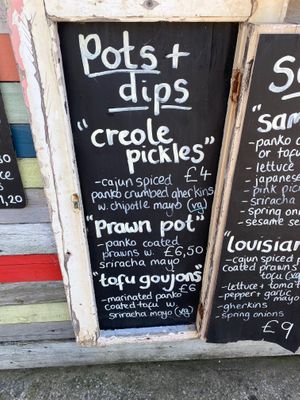 Pots +
dips
"creole
pickles"
- cajun spiced £4
panko crumbed gherkins
w. chipotle mayo (vg)
"prawn pot"
- panko coated
prawns w. £6,50
sriracha mayo
"tofu goujons"
- marinated panko £6
coated tofu w.
sriracha mayo (vg)
"sam
- panko
or tofu
- lettuce
- japanese
- pink pick
- sriracha
- spring onion
- sesame se
"louisian
- cajun spiced p
coated prawns
tofu
- lettuce + tomat
- pepper + garlic
mayo
- gherkins
- spring onions
£9
50
1,20